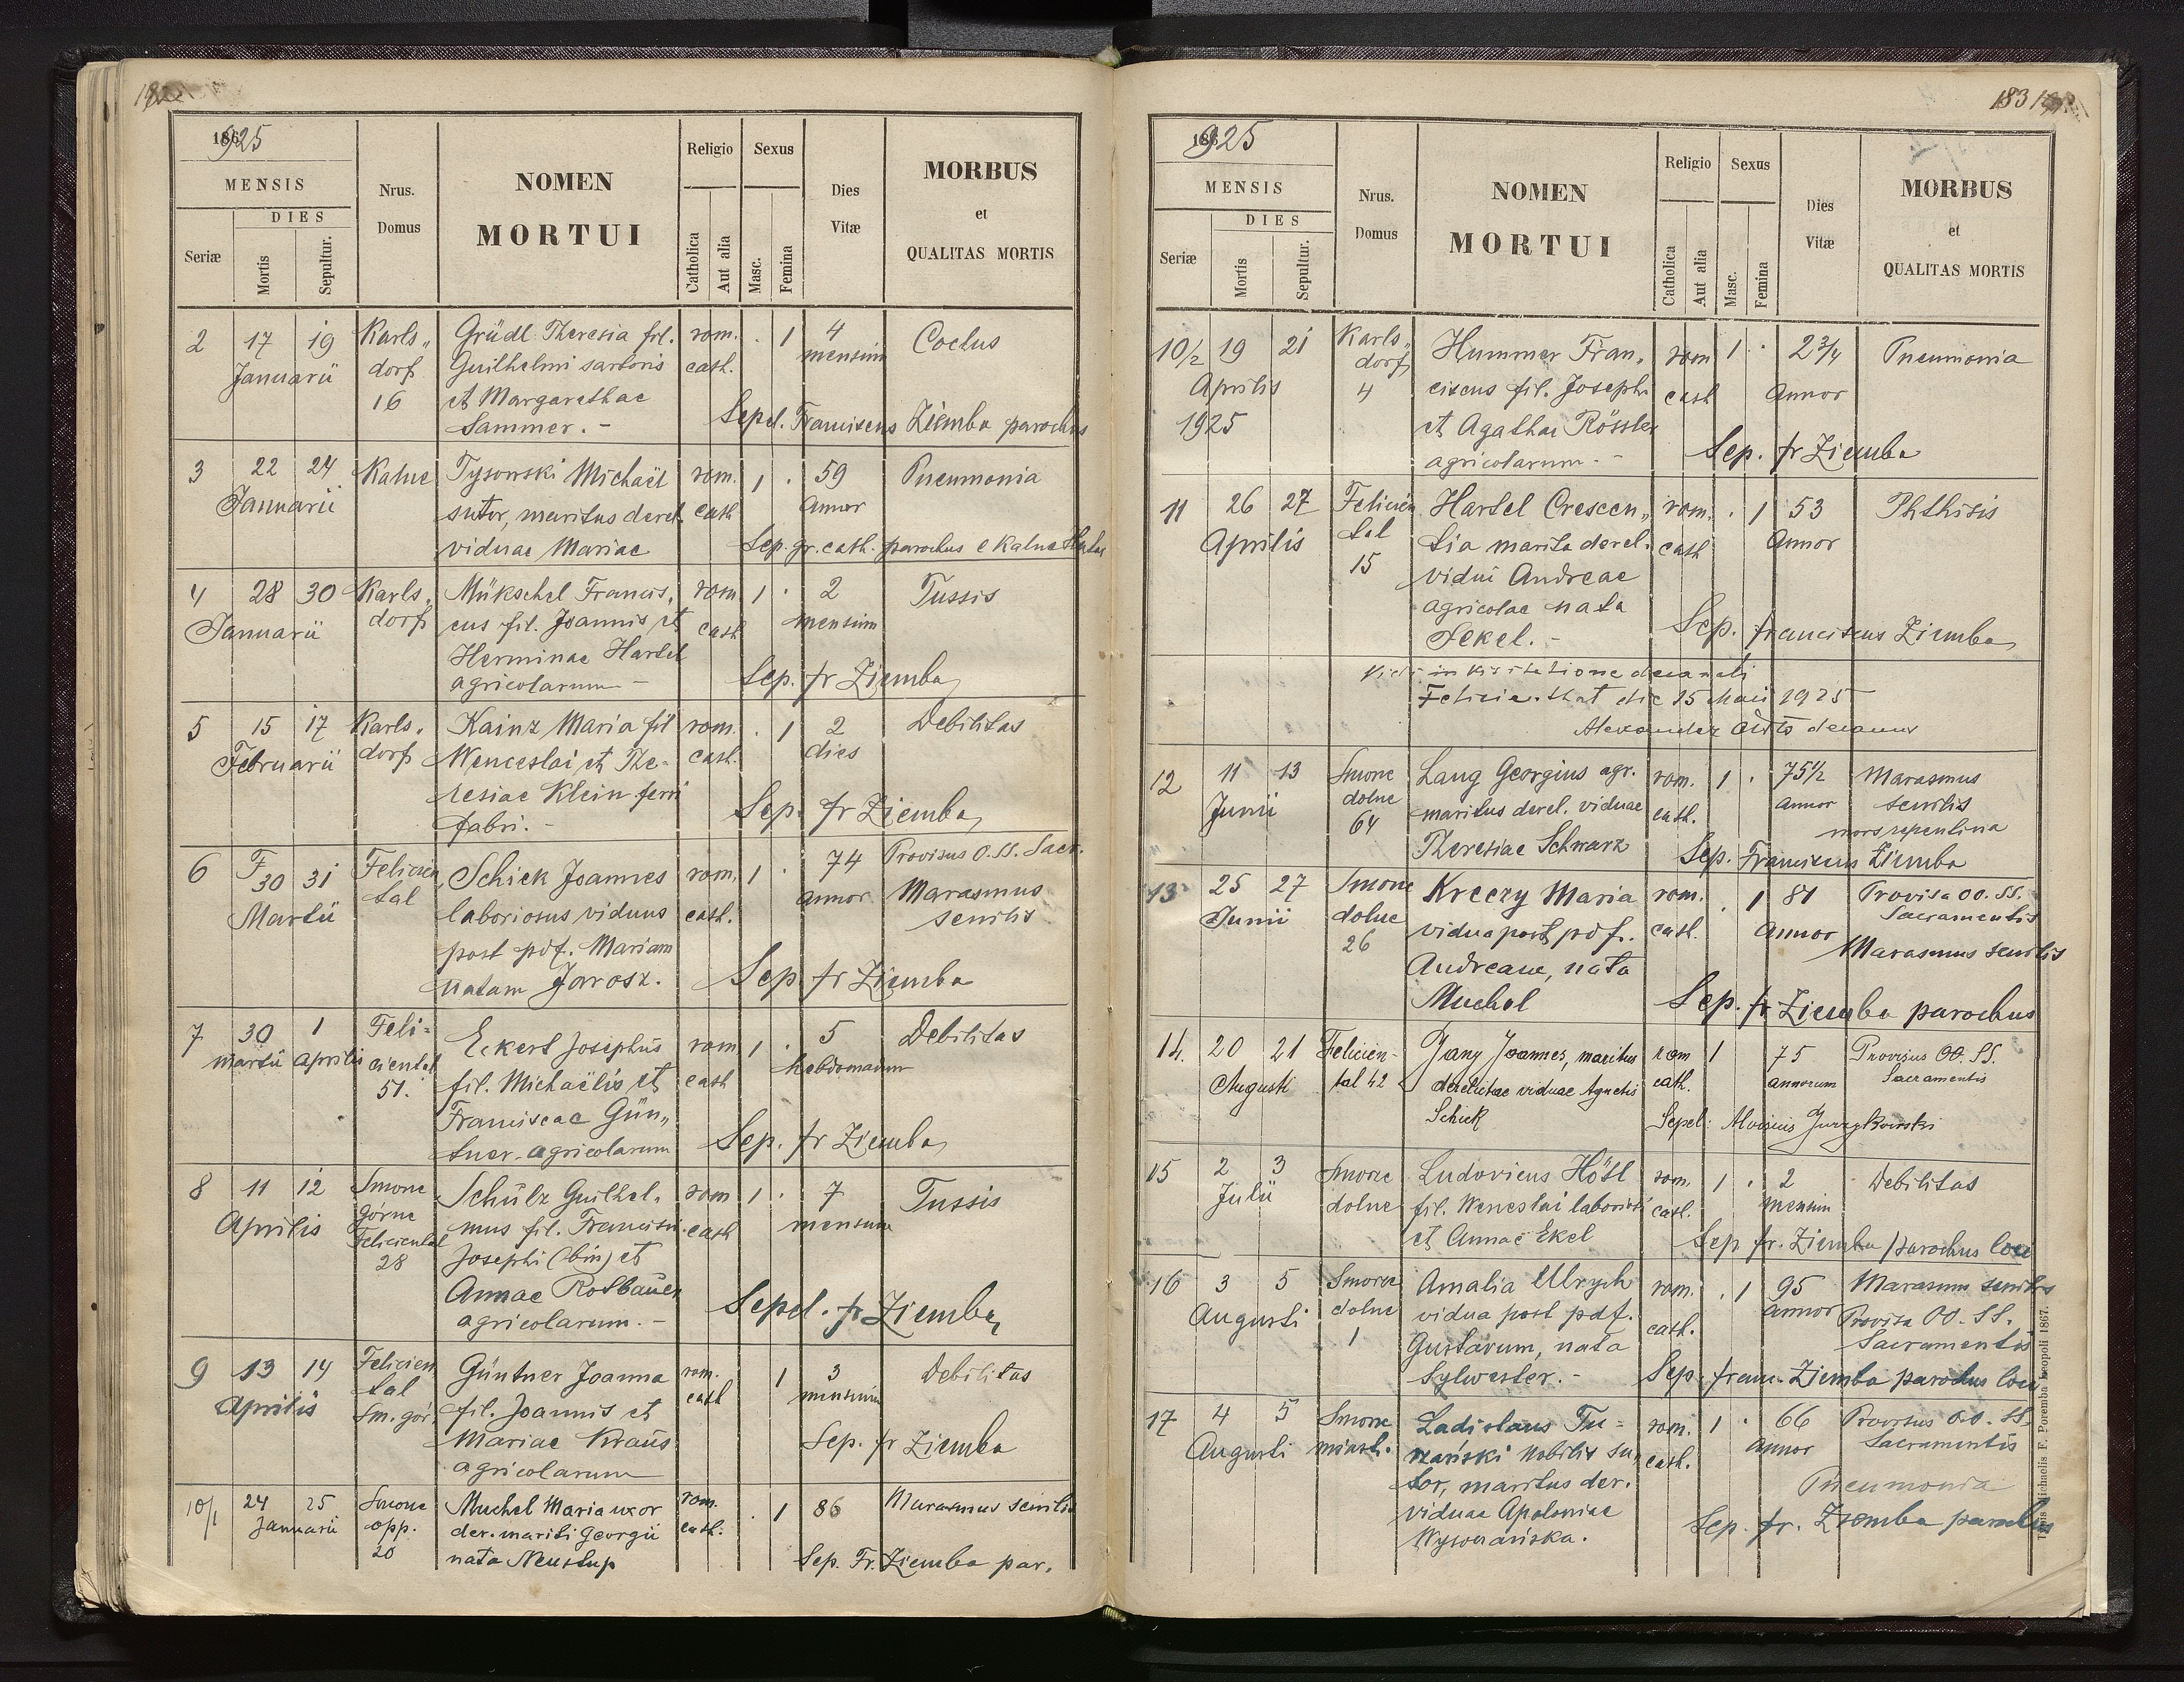 1925
MENSIS
DIES
Seriæ
Mortis
Sepultur.
Nrus.
Domus
NOMEN
MORTUI
Religio
Catholica
Aut alia
Sexus
Masc.
Femina
Dies
Vitæ
MORBUS
et
QUALITAS MORTIS
2 17 19 Karls„ Grüdl Theresia fil. rom. . 1 4 Coctus
Januarii dorf Guilhelmi sartoris cath. mensium
16 et Margarethae
Sammer. - Sepel. Franciscus Ziemba parochus
3 22 24 Kalne Tysowski Michaël rom. 1 . 59 Pneumonia
Januarii sutor, maritus derel. cath annor
viduae Mariae Sep. gr. cath. parochus e Kalne
4 28 30 Karls„ Mükschel Francis„ rom 1 . 2 Tussis
Januarii dorf cus fil. Joannis et cath mensium
Herminae Hartel
agricolarum - Sep. fr Ziemba
5 15 17 Karls„ Kainz Maria fil rom. . 1 2 Debilitas
Februarii dorf Wenceslai et The- cath. dies
resiae Klein ferri
fabri. - Sep. fr Ziemba
6 F 30 31 Felicien Schick Joannes rom. 1 . 74 Provisus O. SS. Sacr.
Martii tal laboriosus viduus cath. annor Marasmus
senilis
post pdf. Mariam
natam Jarosz. Sep fr Ziemba
7 30 1 Feli= Eckert Josephus rom 1 . 5 Debilitas
Martii Aprilis ciental fil. Michaëlis et cath hebdomadum
51. Franciscae Gün„
tner agricolarum Sep. fr Ziemba
8 11 12 Smorze Schülz Guilhel„ rom 1 . 7 Tussis
Aprilis górne mus fil. Francisci cath mensium
Feliciental Josephi (bin) et
28 Annae Rotbauer
agricolarum. - Sepel. fr Ziemba
9 13 14 Felicien Güntner Joanna rom. 1 3 Debilitas
Aprilis tal fil. Joannis et cath mensium
Sm. gór. Mariae Kraus Sep. fr Ziemba
agricolarum
10/1 24 25 Smorze Muchel Maria uxor rom. . 1 86 Marasmus senilis
Januarii opp. der. mariti Georgii cath.
20 nata Neustup Sep. Fr. Ziemba par.
183
1925
MENSIS
DIES
Seriæ
Mortis
Sepultur.
Nrus.
Domus
NOMEN
MORTUI
Religio
Catholica
Aut alia
Sexus
Masc.
Femina
Dies
Vitæ
MORBUS
et
QUALITAS MORTIS
10/2 19 21 Karls„ Hummer Fran„ rom 1 . 2 3/4 Pneumonia
Aprilis dorf ciscus fil. Josephi cath Annor
1925 4 et Agathae Rössler
agricolarum - Sep. fr Ziemba
11 26 27 Felicien Hartel Crescen„ rom. . 1 53 Phthisis
Aprilis tal tia marita derel. cath Annor
15 vidui Andreae
agricolae nata
Jekel. - Sep. Franciscus Ziemba
Vidi in visitatione decanali
Felicienthal die 15 Maii 1925
Alexander decanus
12 11 13 Smorze Lang Georgius agr. rom. 1 . 75 1/2 Marasmus
Junii dolne maritus derel. viduae cath. annor senilis
64 mors repentina
Theresiae Schwarz Sep. Franciscus Ziemba
13 25 27 Smorze Kreczy Maria rom. . 1 81 Provisa OO. SS.
Junii dolne vidua post pdf. cath. Annor Sacramentis
26 Andreaue, nata Marasmus senilis
Muchol Sep. fr Ziemba parochus
14. 20 21 Felicien- Jany Joannes, maritus rom 1 75 Provisus OO. SS.
Augusti tal 42 derelictae viduae Agnetis cath. annorum Sacramentis
Schick Sepel: Aloisius Jurzykowski
15 2 3 Smorze Ludovicus Hötl rom. 1 . 2 Debilitas
Julii dolne fil. Wenceslai laboriosi cath. mensium
et Annae Ekel Sep fr. Ziemba parochus loci
16 3 5 Smorze Amalia Ulrych rom. . 1 95 Marasmus senilis
Augusti dolne vidua post pdf. cath. annor Provisa OO. SS.
1 Gustavum, nata Sacramentis
Sylwester. - Sep. franc. Ziemba parochus loci
17 4 5 Smorze Ladislaus Tu= rom. 1 . 66 Provisus OO. SS.
Augusti miast. rzański nobilis su„ cath. Annor Sacramentis
tor, maritus der. Pneumonia
viduae Apoloniae Sep. fr. Ziemba parochus
Wysoczańska.
Typis Michaelis F. Poremba Leopoli 1867.